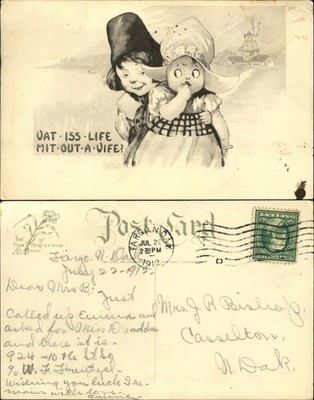 VAT ISS LIFE
MIT OUT A VIFE!
Post Card
FARGO, N. DAK.
JUL 2
PM
1912
Fargo, N. Da
July 22 - 1912.
Dear Mrs B. Just
Called up Emma and
asked for Miss
and there it is.
924 - 10th St So
% W. F.
Wishing you luck I re-
main with love.
Mrs. J. R. Bishop,
Casselton,
N. Dak.